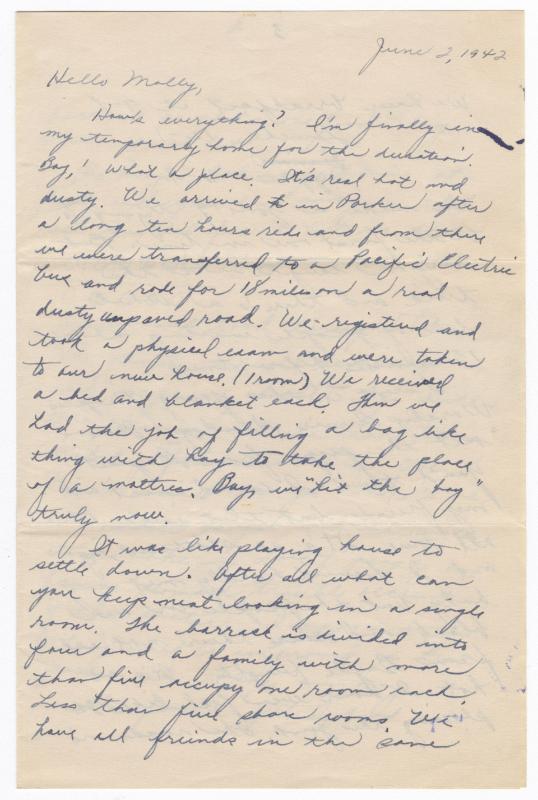 June 2, 1942
Hello Molly,
How's everything? I'm finally in
my temporary home for the duration.
Boy! what a place. It's real hot and
dusty. We arrived in Parker after
a long ten hours ride and from there
we were transferred to a Pacific Electric
bus and rode for 18 miles on a real
dusty unpaved road. We registered and
took a physical exam and were taken
to our new house. (1 room) We received
a bed and blanket each. Then we
had the job of filling a bag like
thing with hay to take the place
of a mattres. Boy, we "hit the hay"
truly now.
It was like playing house to
settle down. After all what can
you keep neat looking in a single
room. The barrack is divided into
four and a family with more
than five occupy one room each.
Less than five share rooms. We
have all friends in the same